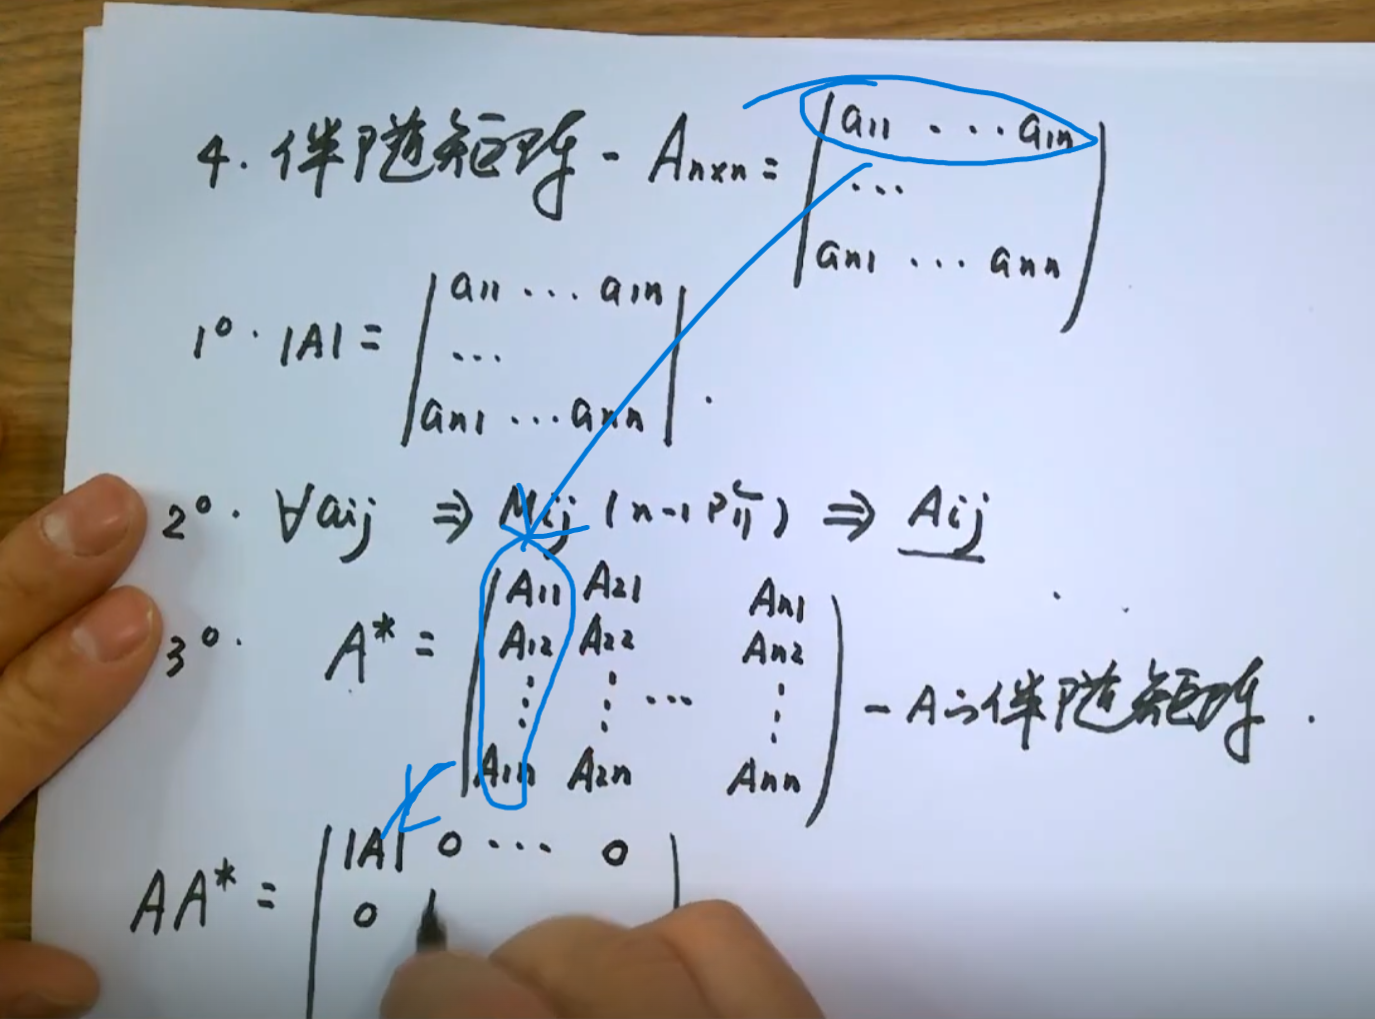 4. 伴随矩阵 - Aₙₓₙ =
a₁₁ ··· a₁ₙ
···
aₙ₁ ··· aₙₙ
1°. |A| =
a₁₁ ··· a₁ₙ
···
aₙ₁ ··· aₙₙ
2°. ∀aij ⇒ Mij (n-1阶) ⇒ Aij
3°. A* =
A₁₁ A₂₁ Aₙ₁
A₁₂ A₂₂ Aₙ₂
⋮ ⋮ ··· ⋮
A₁ₙ A₂ₙ Aₙₙ
- A之伴随矩阵.
AA* =
|A| 0 ··· 0
0